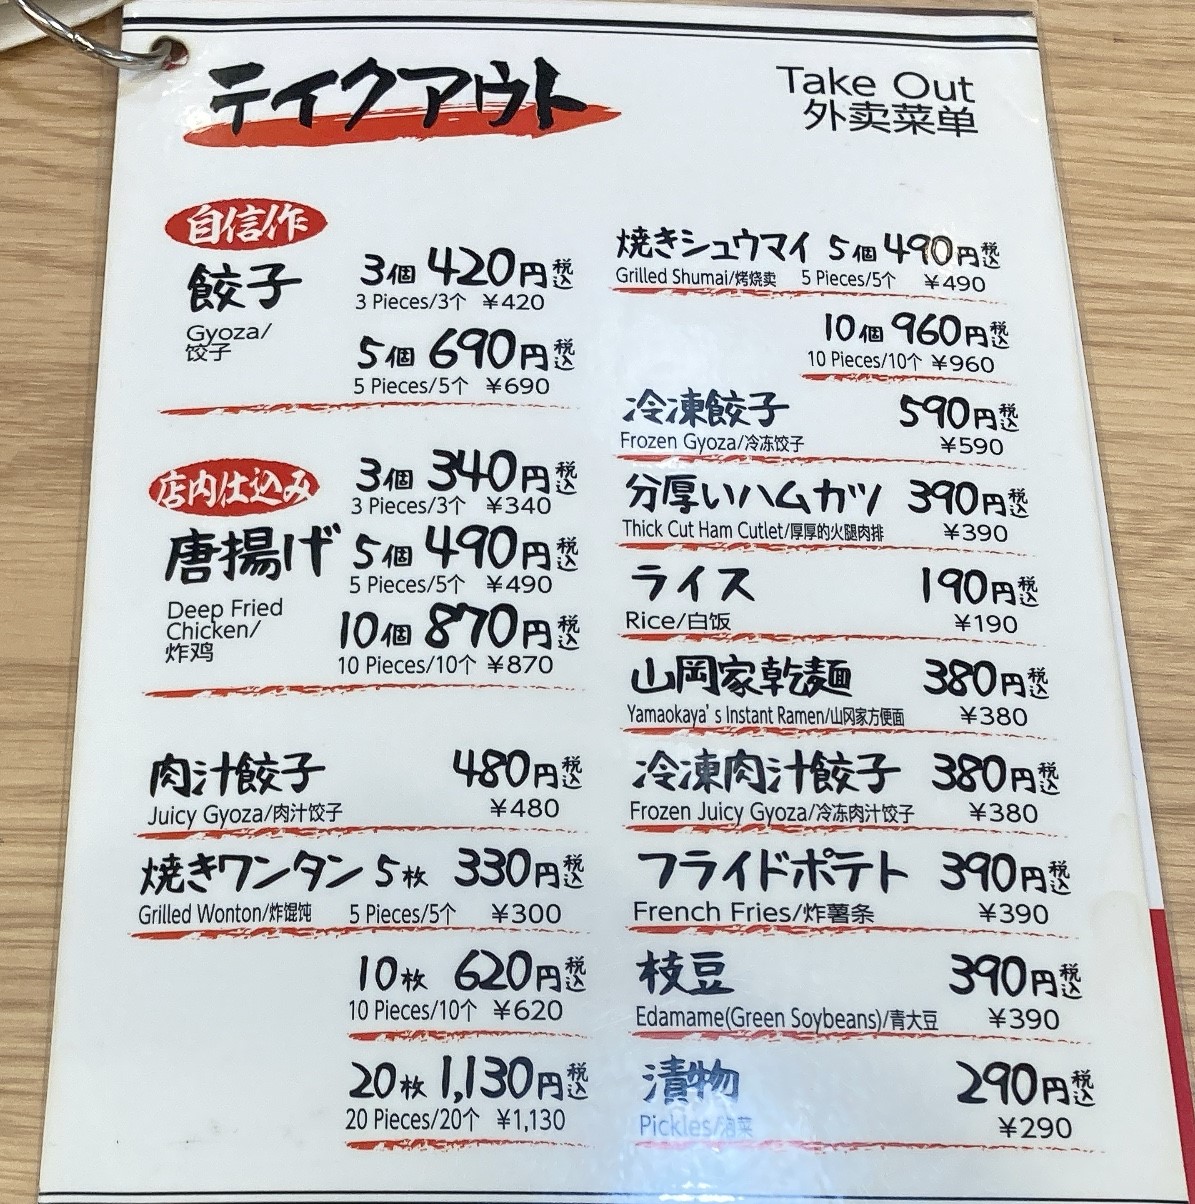 テイクアウト
Take Out
外卖菜单
自信作
餃子
Gyoza/
饺子
3個 420円税込
3 Pieces/3个 ¥420
5個 690円税込
5 Pieces/5个 ¥690
店内仕込み
唐揚げ
Deep Fried
Chicken/
炸鸡
3個 340円税込
3 Pieces/3个 ¥340
5個 490円税込
5 Pieces/5个 ¥490
10個 870円税込
10 Pieces/10个 ¥870
肉汁餃子 480円税込
Juicy Gyoza/肉汁饺子 ¥480
焼きワンタン 5枚 330円税込
Grilled Wonton/炸馄饨 5 Pieces/5个 ¥300
10枚 620円税込
10 Pieces/10个 ¥620
20枚 1,130円税込
20 Pieces/20个 ¥1,130
焼きシュウマイ 5個 490円税込
Grilled Shumai/烤烧卖 5 Pieces/5个 ¥490
10個 960円税込
10 Pieces/10个 ¥960
冷凍餃子 590円税込
Frozen Gyoza/冷冻饺子 ¥590
分厚いハムカツ 390円税込
Thick Cut Ham Cutlet/厚厚的火腿肉排 ¥390
ライス 190円税込
Rice/白饭 ¥190
山岡家乾麺 380円税込
Yamaokaya's Instant Ramen/山冈家方便面 ¥380
冷凍肉汁餃子 380円税込
Frozen Juicy Gyoza/冷冻肉汁饺子 ¥380
フライドポテト 390円税込
French Fries/炸薯条 ¥390
枝豆 390円税込
Edamame(Green Soybeans)/青大豆 ¥390
漬物 290円税込
Pickles/泡菜 ¥290